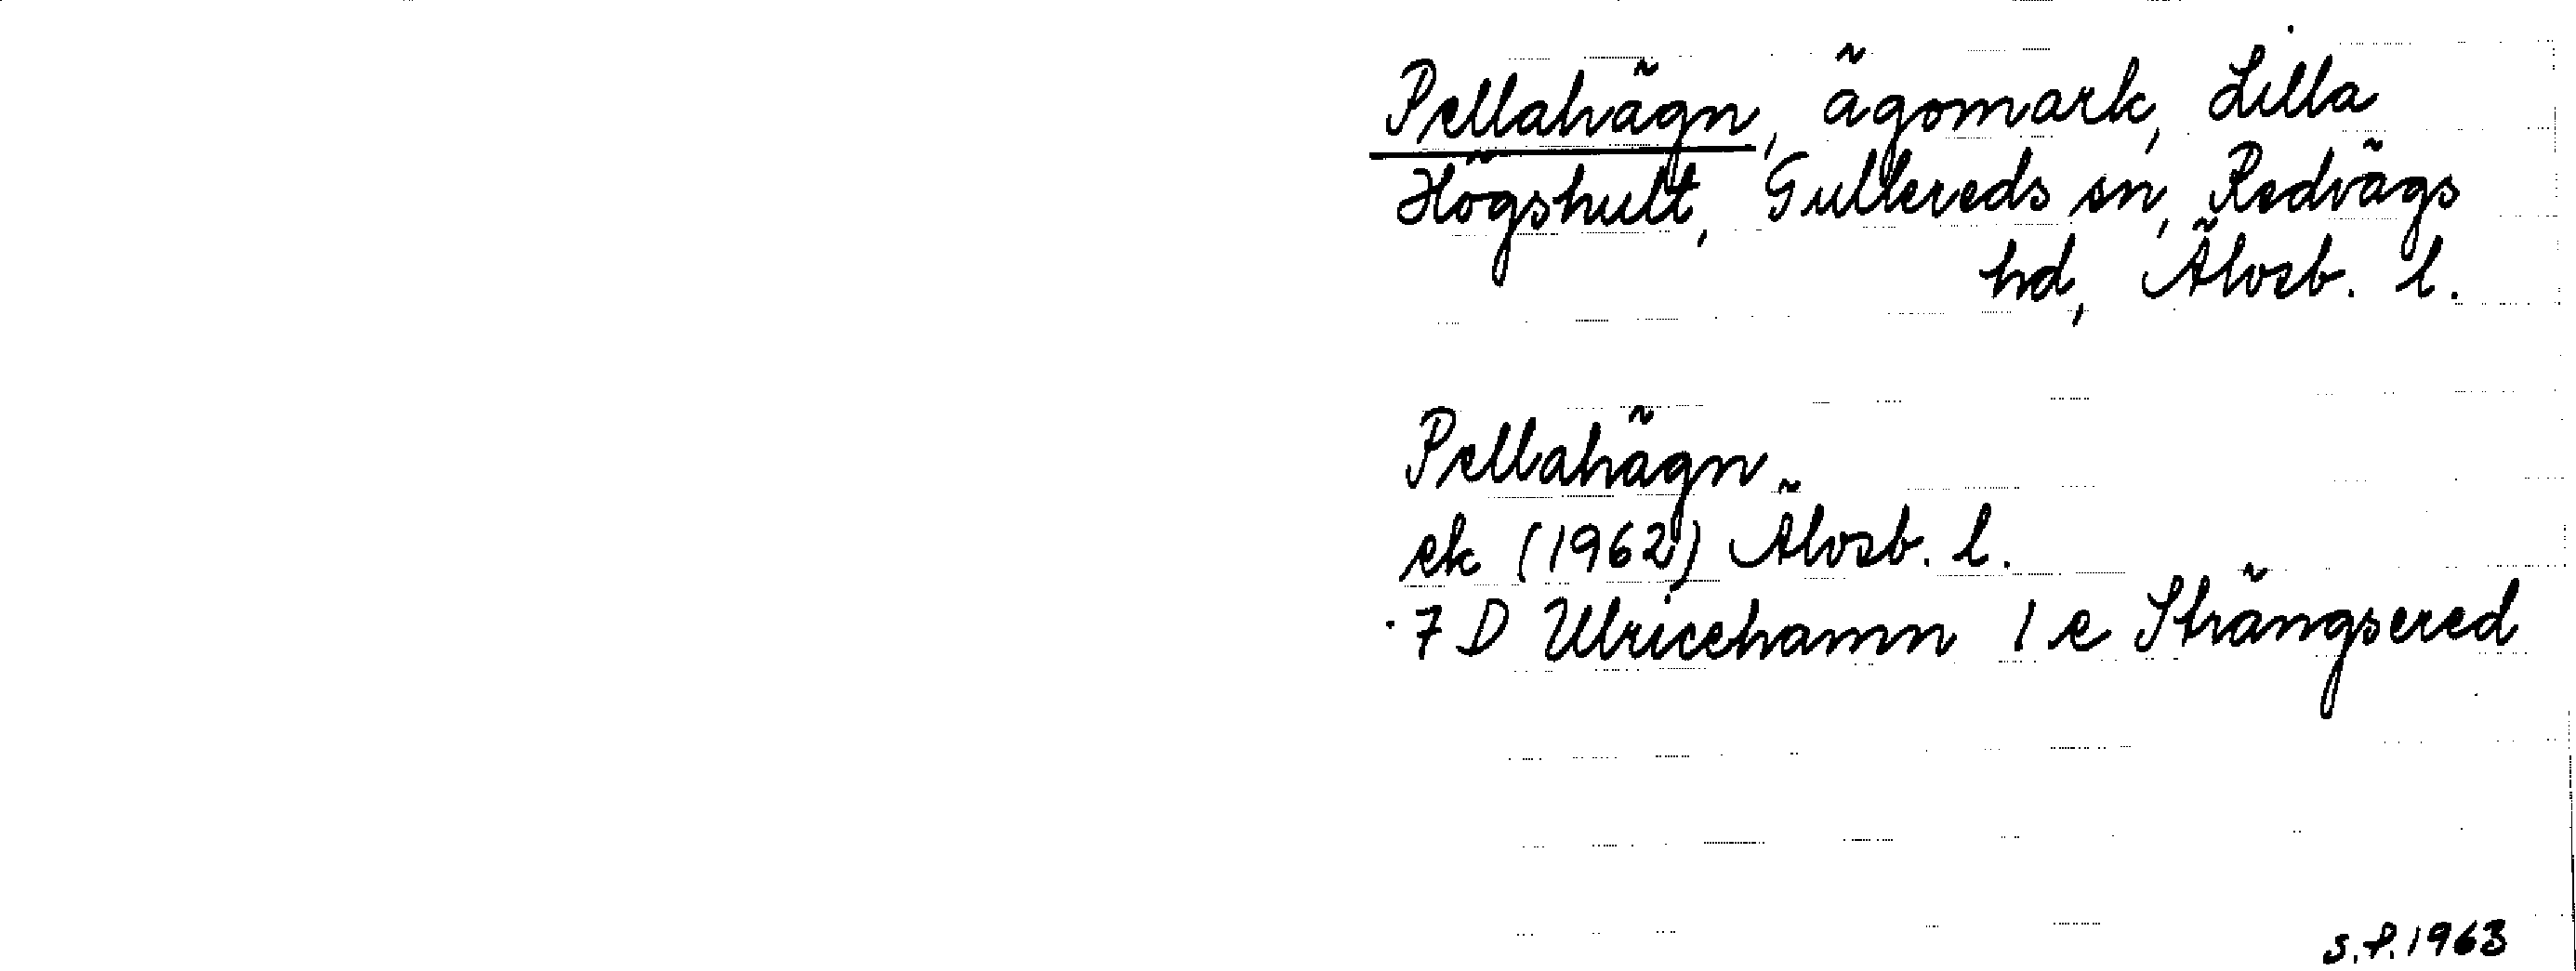 Pellahägn, ägomark, Lilla
Högshult, Gullereds sn, Redvägs
hd, Älvsb. l.
Pellahägn
ek (1962) Älvsb. l.
7 D Ulricehamn 1 e Strängsered
S.P. 1963